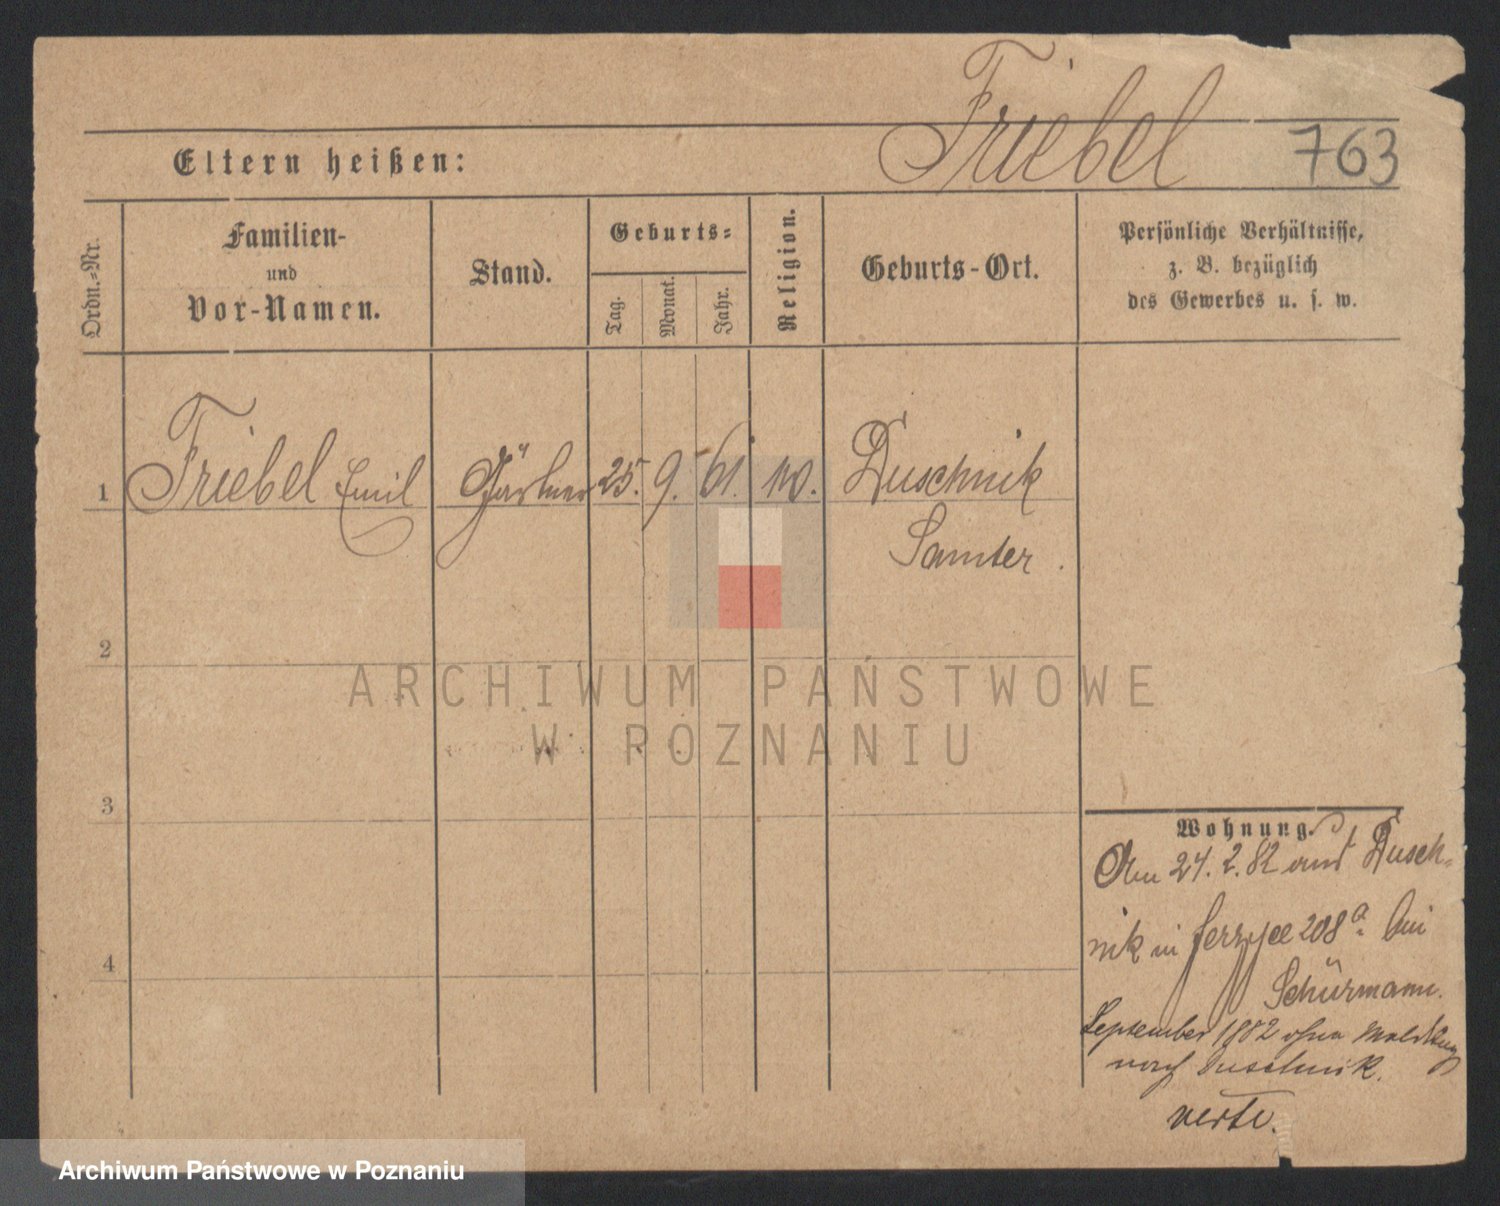 Friebel 763
Eltern heißen:
Ordn.-Nr.
Familien-
und
Vor-Namen.
Stand.
Geburts-
Tag.
Monat.
Jahr.
Religion.
Geburts-Ort.
Persönliche Verhältnisse,
z. B. bezüglich
des Gewerbes u. s. w.
1 Friebel Emil Gärtner 25. 9. 61. Duschnik
Samter.
2
3
4
Wohnung.
Am 24.2.82 aus Dusch-
nik in Jerzyce 208a. bei
Schürmann.
September 1882 ohne Meldung
nach Duschnik.
verte.
ARCHIWUM PAŃSTWOWE
W POZNANIU
Archiwum Państwowe w Poznaniu